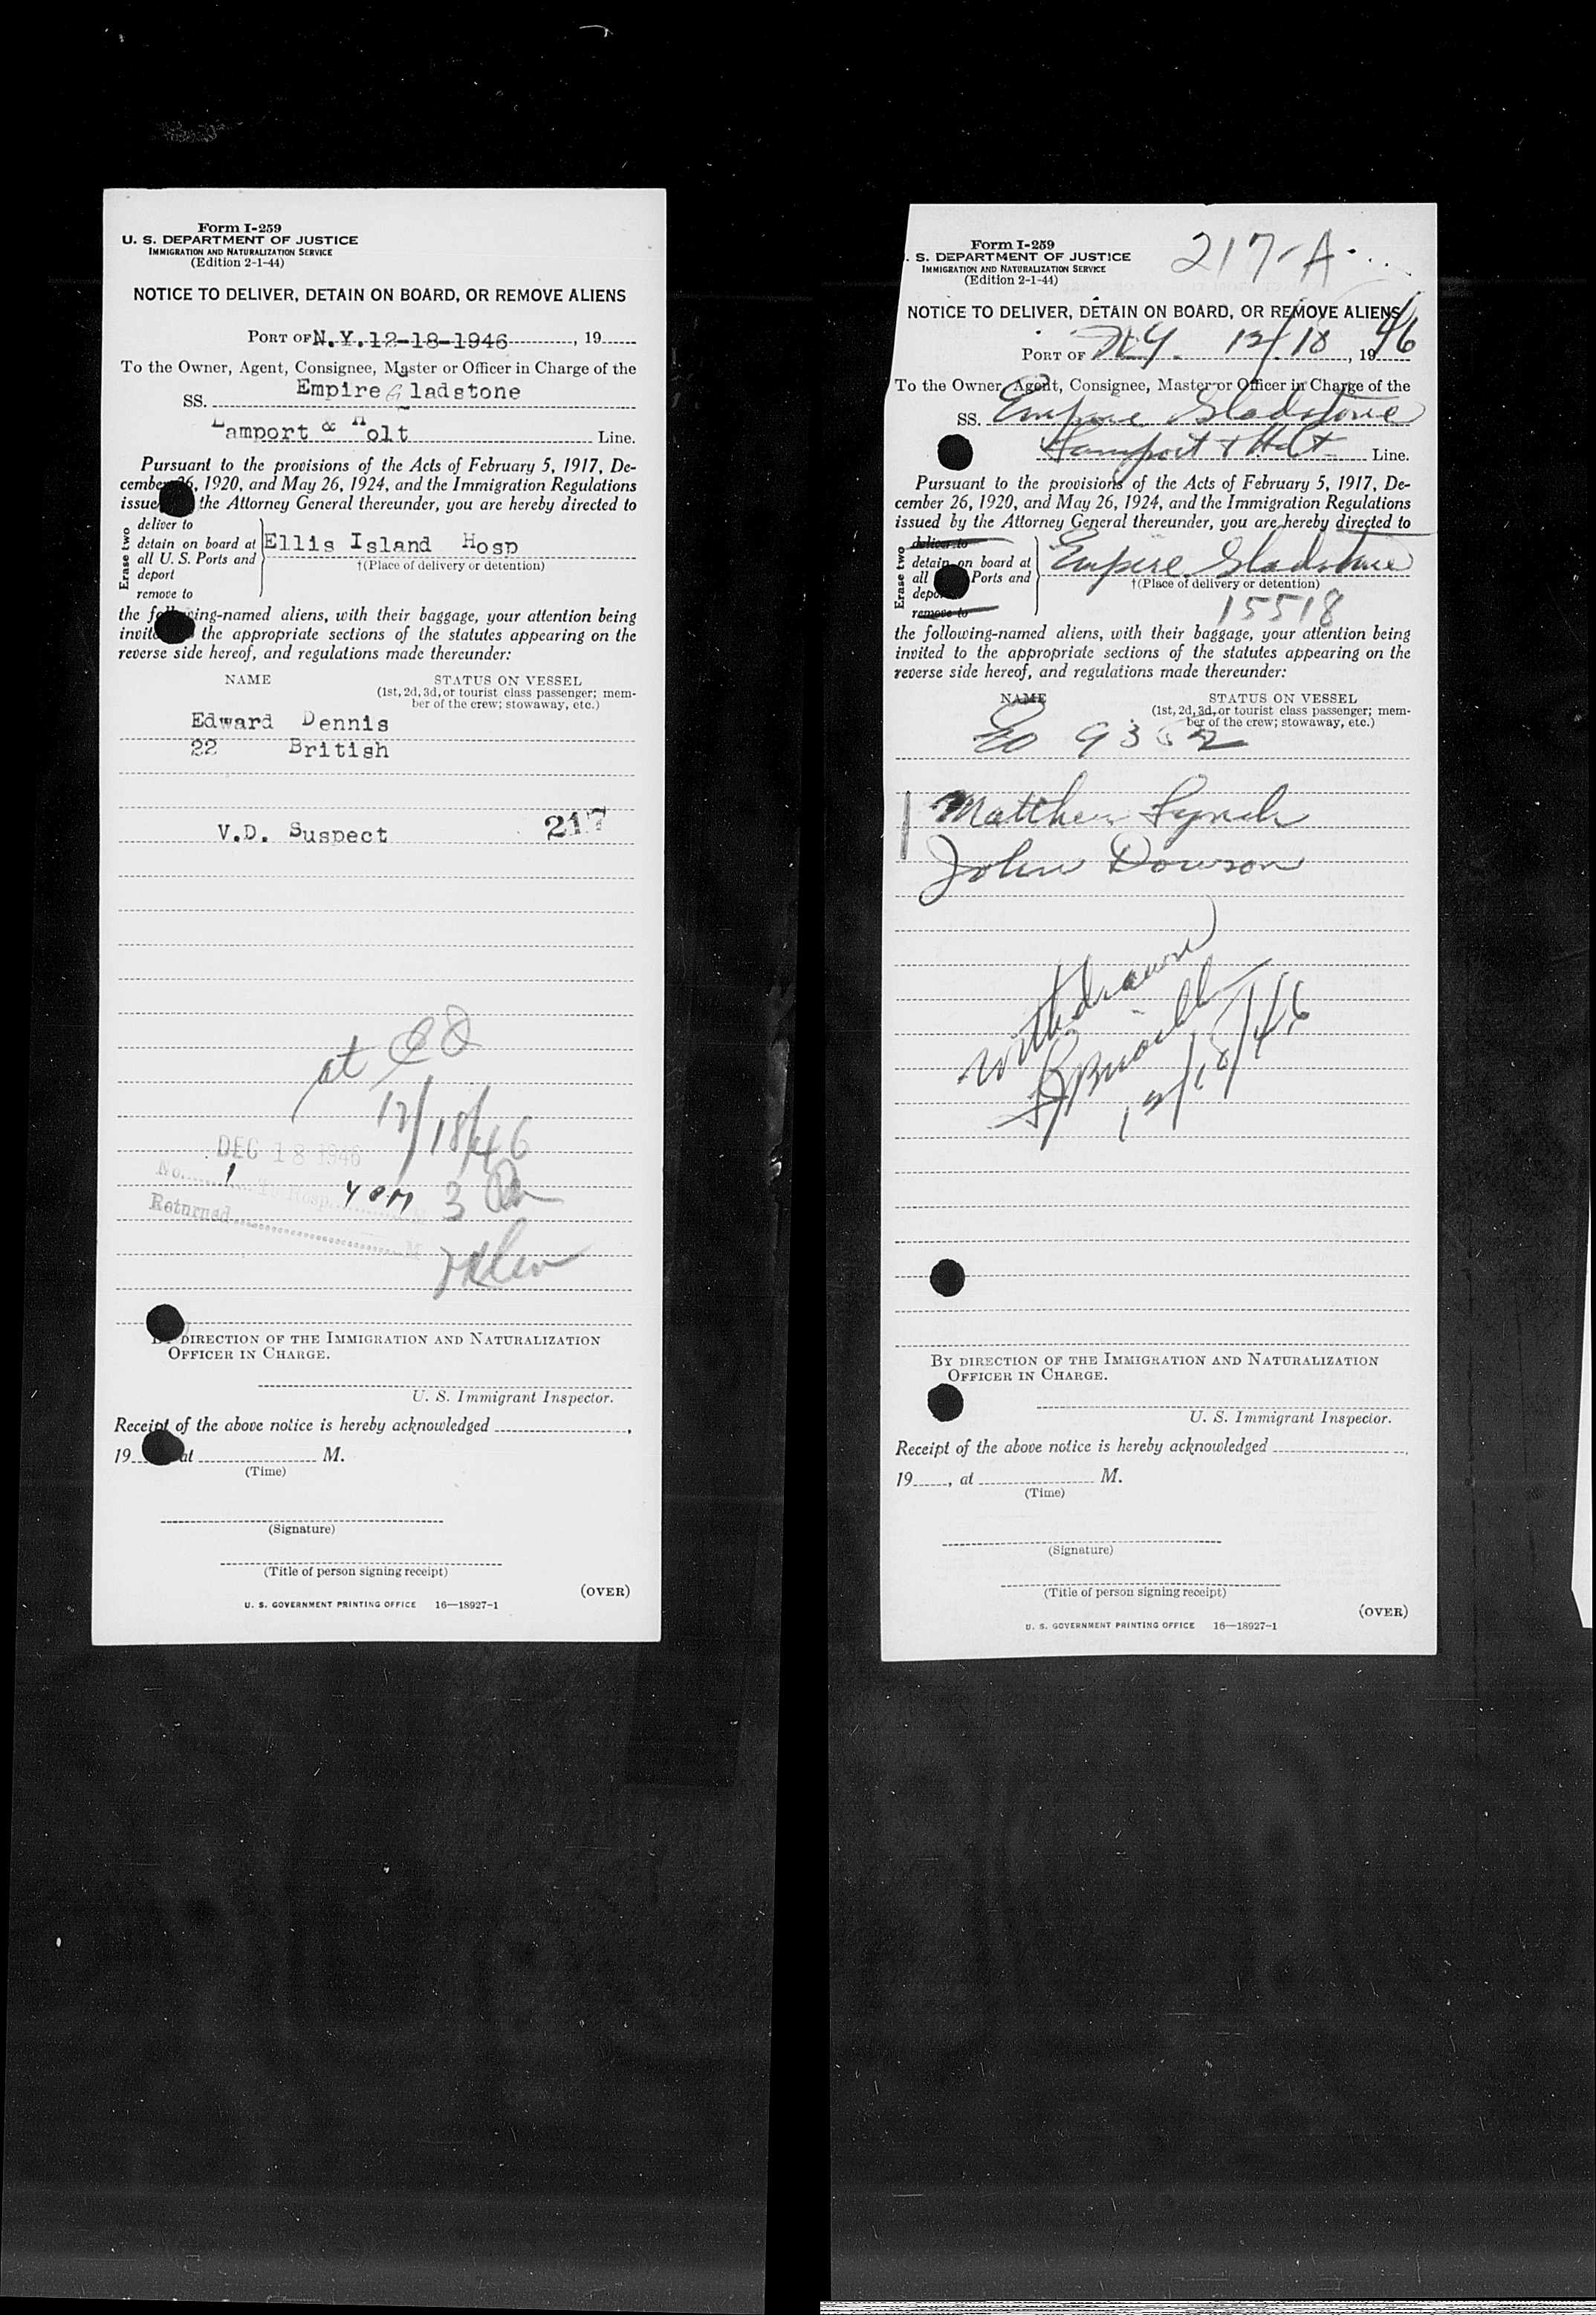 Form I-259
U. S. DEPARTMENT OF JUSTICE
IMMIGRATION AND NATURALIZATION SERVICE
(Edition 2-1-44)
NOTICE TO DELIVER, DETAIN ON BOARD, OR REMOVE ALIENS
PORT OF N.Y. 12-18-1946, 19
To the Owner, Agent, Consignee, Master or Officer in Charge of the
SS. Empire Gladstone
Lamport & Holt Line.
Pursuant to the provisions of the Acts of February 5, 1917, De-
cember 26, 1920, and May 26, 1924, and the Immigration Regulations
issue the Attorney General thereunder, you are hereby directed to
Erase two
deliver to
detain on board at
all U. S. Ports and
deport
remove to
Ellis Island Hosp
†(Place of delivery or detention)
the following-named aliens, with their baggage, your attention being
invite the appropriate sections of the statutes appearing on the
reverse side hereof, and regulations made thereunder:
NAME STATUS ON VESSEL
(1st, 2d, 3d, or tourist class passenger; mem-
ber of the crew; stowaway, etc.)
Edward Dennis
22 British
V.D. Suspect 217
at
12/18/46
DEC 18 1946
No. 1 Hosp. 3
Returned M
DIRECTION OF THE IMMIGRATION AND NATURALIZATION
OFFICER IN CHARGE.
U. S. Immigrant Inspector.
Receipt of the above notice is hereby acknowledged
19 at M.
(Time)
(Signature)
(Title of person signing receipt)
(OVER)
U. S. GOVERNMENT PRINTING OFFICE 16—18927-1
217-A
Form I-259
. S. DEPARTMENT OF JUSTICE
IMMIGRATION AND NATURALIZATION SERVICE
(Edition 2-1-44)
NOTICE TO DELIVER, DETAIN ON BOARD, OR REMOVE ALIENS
PORT OF N.Y. 12/18, 1946
To the Owner, Agent, Consignee, Master or Officer in Charge of the
SS. Empire Gladstone
Lamport & Holt Line.
Pursuant to the provisions of the Acts of February 5, 1917, De-
cember 26, 1920, and May 26, 1924, and the Immigration Regulations
issued by the Attorney General thereunder, you are hereby directed to
Erase two
deliver to
detain on board at
all Ports and
depo
remove to
Empire Gladstone
†(Place of delivery or detention)
15518
the following-named aliens, with their baggage, your attention being
invited to the appropriate sections of the statutes appearing on the
reverse side hereof, and regulations made thereunder:
NAME STATUS ON VESSEL
(1st, 2d, 3d, or tourist class passenger; mem-
ber of the crew; stowaway, etc.)
Matthew Lynch
John Dowson
withdrawn
12/18/46
BY DIRECTION OF THE IMMIGRATION AND NATURALIZATION
OFFICER IN CHARGE.
U. S. Immigrant Inspector.
Receipt of the above notice is hereby acknowledged
19, at M.
(Time)
(Signature)
(Title of person signing receipt)
(OVER)
U. S. GOVERNMENT PRINTING OFFICE 16—18927-1